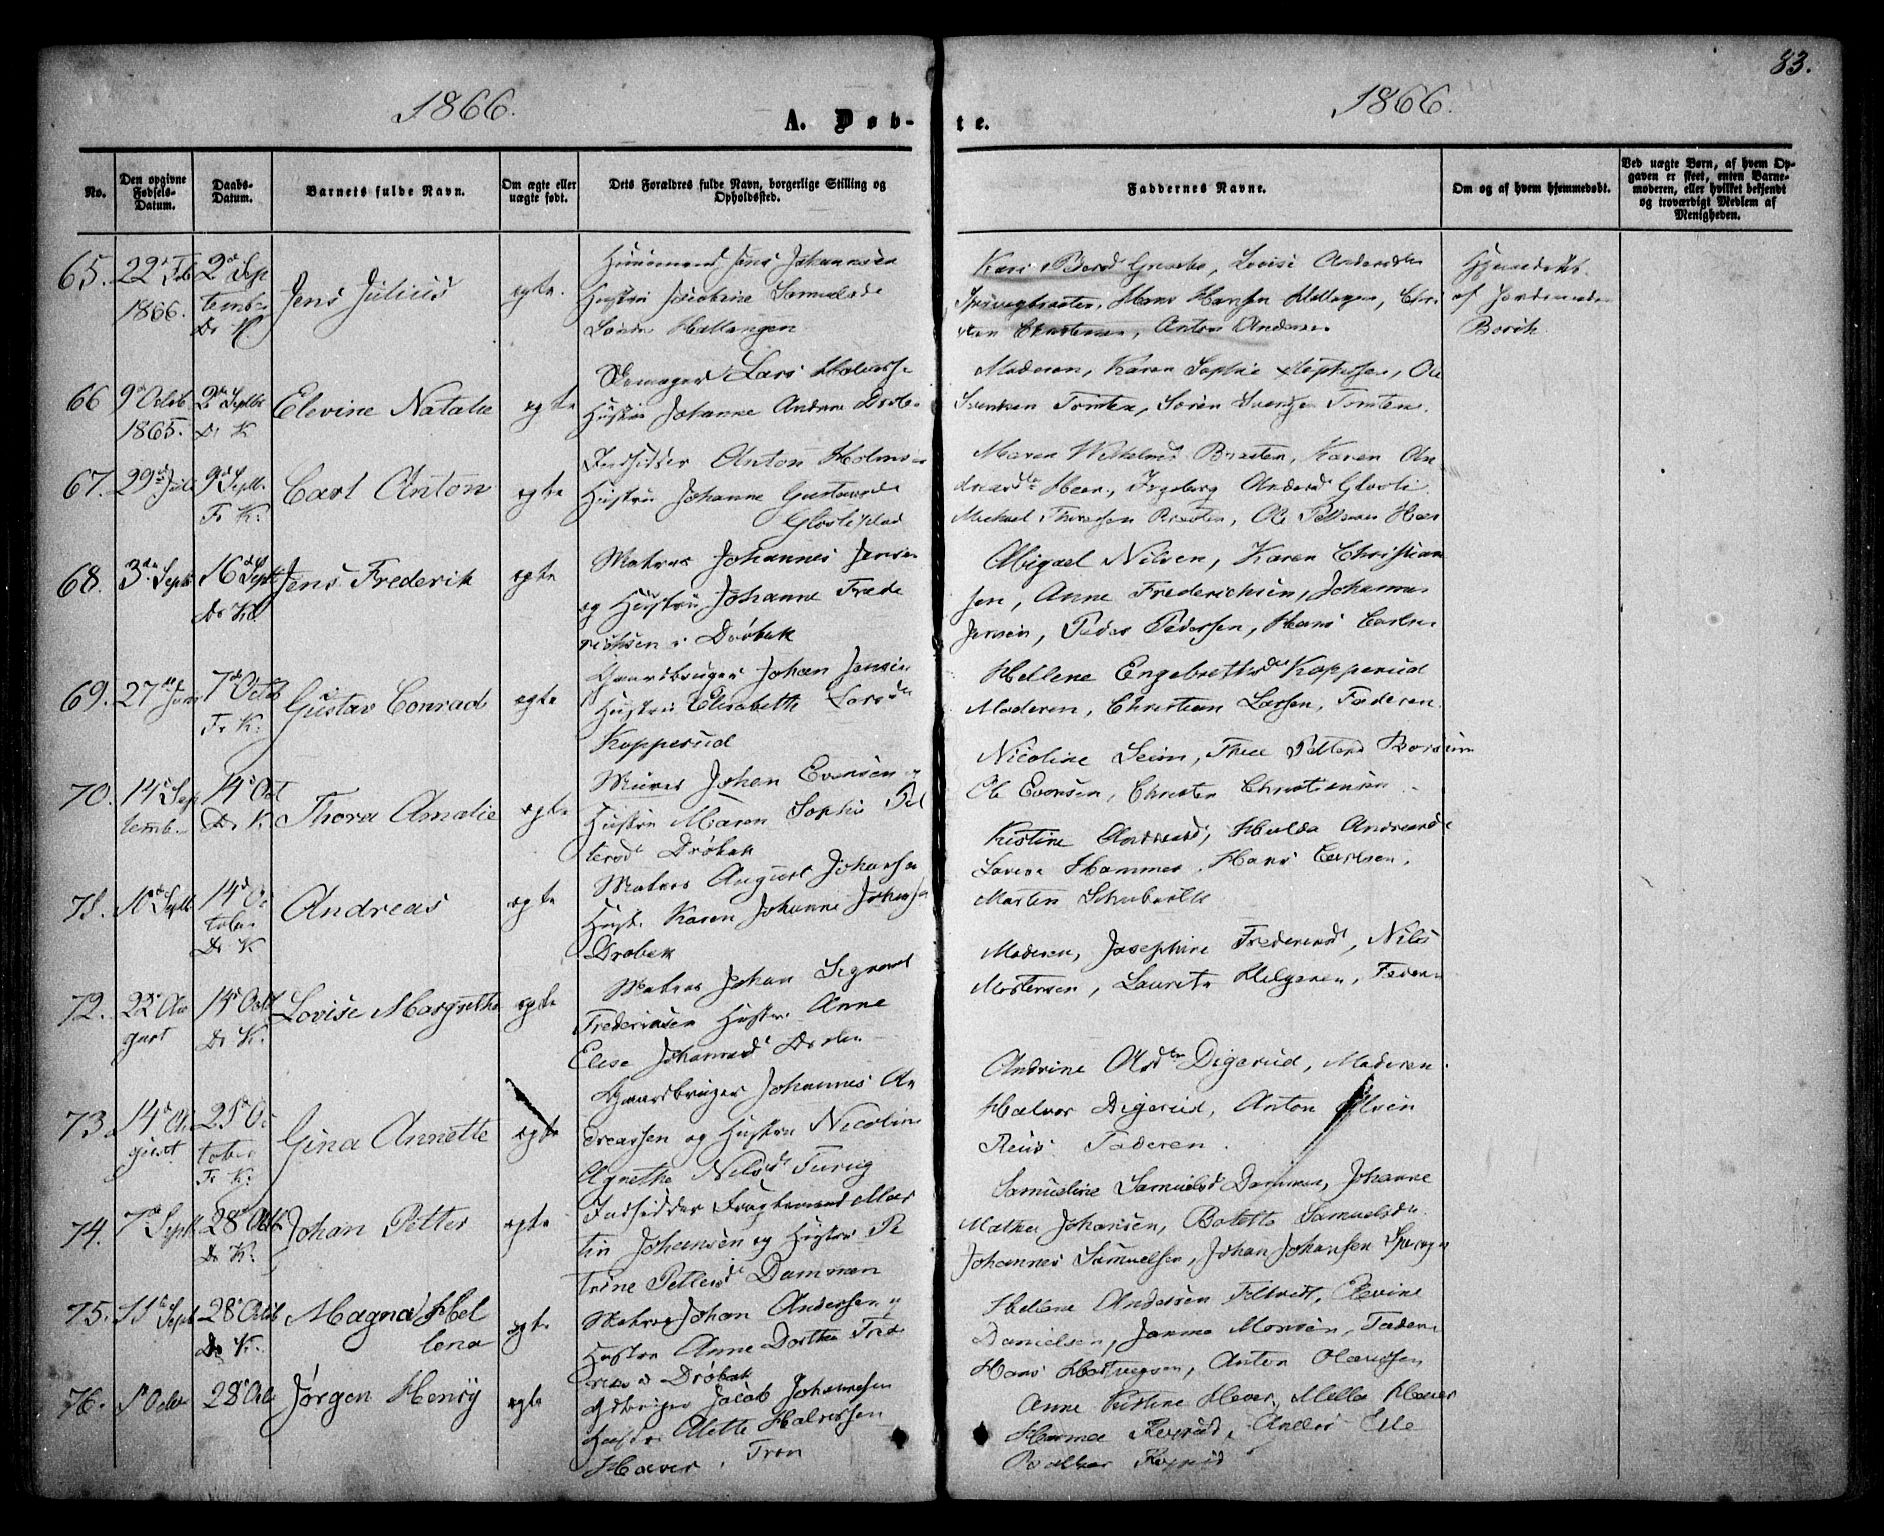 83.
1866.
A. Døb-
te.
1866.
No.
Den opgivne Fødsels-Datum.
Daabs-Datum.
Barnets fulde Navn.
Om ægte eller uægte født.
Dets Forældres fulde Navn, borgerlige Stilling og Opholdssted.
Faddernes Navne.
Om og af hvem hjemmedøbt.
Ved uægte Børn, af hvem Opgaven er skeet, enten Barnemoderen, eller hvilket bekjendt og troværdigt Medlem af Menigheden.
65. 22de Feb 1866. 2den Septembr Dr K.
Jens Julius
ægte.
Jens Johannsen
Hustru Samuelsd
Hallangen
Lovise Andersdtr
Hans Hansen Hallangen,
Anton Andersen
Hjemmedøbt
af Jordemoder
66 9de Octob 1865. 2den Septbr Dr K
Elevine Natalie
ægte
Lars Halvorsen
Hustru Johanne Andrine Drøbak
Moderen, Karen Sophie Ole
Svensen Tomten, Sören Svensen Tomten.
67. 29de Juli 9de Septb. Fr K.
Carl Anton
ægte
Indsidder Anton Holmsen
Hustru Johanne Gustavsd
Glosliplad
Maren Braaten, Karen An
dreasdtr Heer, Ingeborg Andersd Glosli
Michael Thoresen Braaten, Ole Pettersen Heer
68. 3die Septb 16de Septb Dr K
Jens Frederik
ægte
Matros Johannes Jensen
og Hustru Johanne Frede
richsen i Drøbak
Abigael Nilsen, Karen Christian
sen, Anne Frederichsen, Johannes
Jensen, Peder Pedersen, Hans Carlsen
69. 27de Juni 7de Octob Fr K.
Gustav Conrad
ægte
Gaardbruger Johan Jensen
Hustru Elisabeth Larsdtr
Kopperud
Hellene Engebretsdtr Kopperud
Moderen, Christian Larsen, Faderen.
70. 14de Septemb. 14de Oct Dr K.
Thora Amalie
ægte
Murer Johan Evensen og
Hustru Maren Sophie Pet
tersd Drøbak
Nicoline Seim, Thea Pettersd
Ole Evensen, Christen Christiansen.
71. 10de Septb 14de October Dr K
Andreas
ægte
Matros August Johansen
Hust. Karen Johanne Johansen
Drøbak
Kistine Andreasd, Hulda Andreasd
Lovise Hammer. Hans Carlsen.
Morten Schubarth
72. 22de August 14de Octob Dr K.
Lovise Margrethe
ægte
Matros Johan Sigvart
Frederiksen Hustru Anne
Elise Johannesd Drøbak
Moderen, Josephine Frederiksd, Nils
Mortensen, Laurits Helgesen, Faderen
73. 14de August 21de October Fr K.
Gina Annette
ægte
Gaardbruger Johannes An
dreassen og Hustru Nicoline
Agnethe Nilsdtr
Andrine Olsdtr Digerud, Moderen.
Halvor Digerud, Anton
Faderen.
74. 7de Septb 28de Octb Dr K.
Johan Petter
ægte
Indsidder Fragtemand Mar
tin Johansen og Hustru Pe
trine Pettersd Dammen
Samueline Samuelsd Dammen, Johanne
Mathea Johansen, Botette Samuelsdtr.
Johannes Samuelsen, Johan Johansen
75. 11de Septb 28de Octob Dr K.
Magna Hel
lena
ægte
Matros Johan Andersen og
Hustru Anne Dorthea Fred
Drøbak
Hellene Andersen Oline
Danielsen, Janna Monsen, Faderen
Hans Anton Olaussen
76. 1ste Octbr 28de Octb
Jørgen Henry
ægte
Gdbruger Jacob Johannesen
Hustru Alette Halvorsen
Haver. Fron
Anne Kistine Haver, Mella Haver
Anders Elle